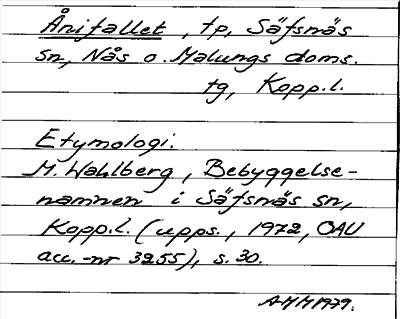 Årifallet, tp, Säfsnäs
sn, Nås o. Malungs doms.
tg, Kopp.l.
Etymologi.
M. Wahlberg, Bebyggelse-
namnen i Säfsnäs sn,
Kopp.l. (upps., 1972, OAU
acc.-nr 3255), s. 30.
AMM1979.